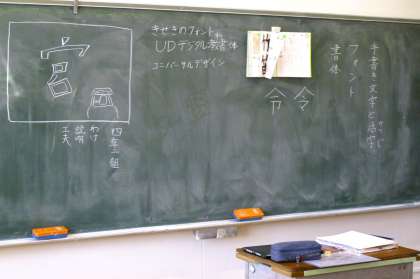 手書き文字と活字
かつじ
フォント
書体
きせきのフォント
UDデジタル教書体
ユニバーサルデザイン
令令
言
四年二組
わけ
説明
工夫